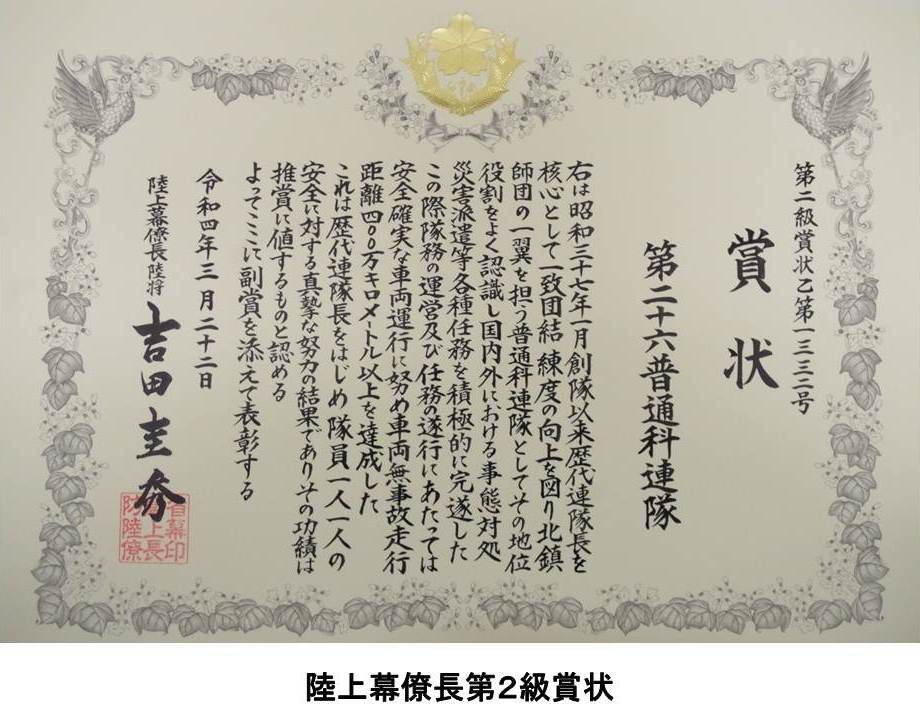 第二級賞状乙第一三三二号
賞状
第二十六普通科連隊
右は昭和三十七年一月創隊以来歴代連隊長を
核心として一致団結 練度の向上を図り北鎮
師団の一翼を担う普通科連隊としてその地位
役割をよく認識し国内外における事態対処
災害派遣等各種任務を積極的に完遂した
この際隊務の運営及び任務の遂行にあたっては
安全確実な車両運行に努め車両無事故走行
距離四〇〇万キロメートル以上を達成した
これは歴代連隊長をはじめ 隊員一人一人の
安全に対する真摯な努力の結果でありその功績は
推賞に値するものと認める
よってここに副賞を添えて表彰する
令和四年三月二十二日
陸上幕僚長陸将 吉田圭秀
防衛省
陸上幕
僚長印
陸上幕僚長第2級賞状